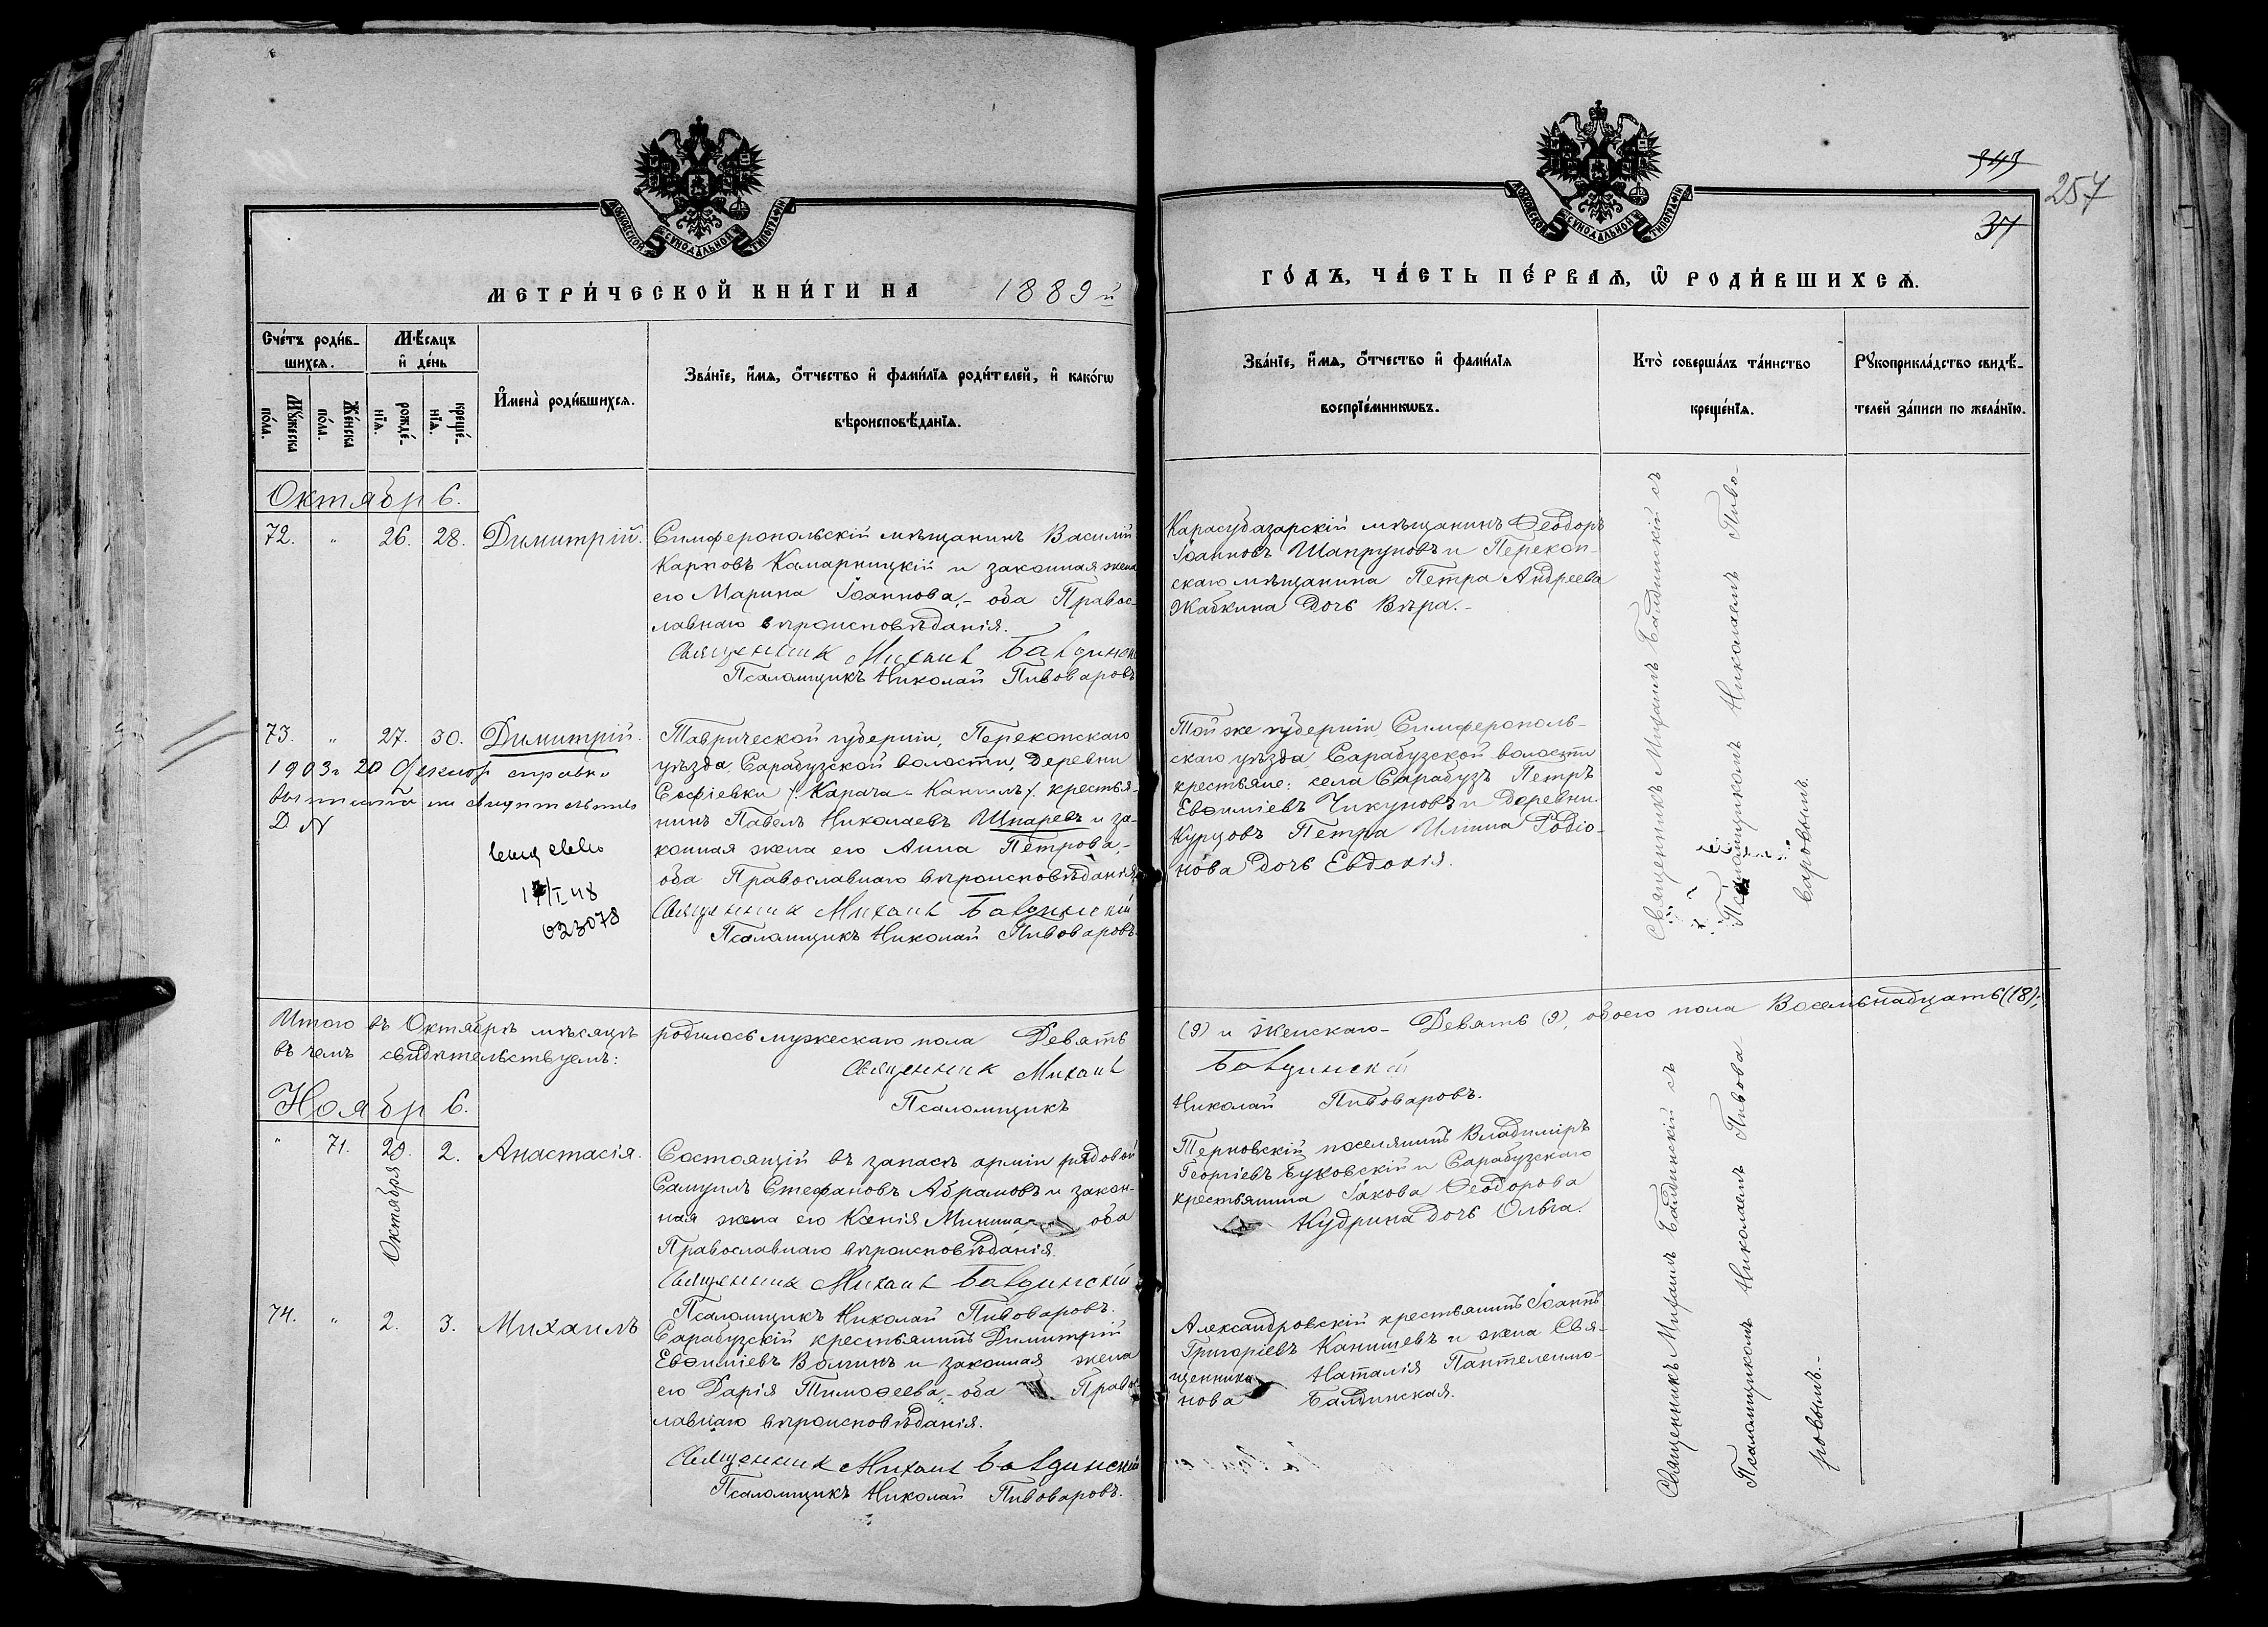 343
257
37
МОСКОВСКОЙ СѴНОДАЛЬНОЙ ТИПОГРАФІИ
МОСКОВСКОЙ СѴНОДАЛЬНОЙ ТИПОГРАФІИ
МЕТРИ́ЧЕСКОЙ КНИ́ГИ НА 1889 й
ГО́ДЪ, ЧА́СТЬ ПЕ́РВАѦ, Ѿ РОДИ́ВШИХСѦ.
Сче́тъ роди́в-
шихсѧ.
Мꙋ́жеска по́ла.
Же́нска по́ла.
Мѣ́сѧцъ
и҆ де́нь
рожде́-
нїѧ.
креще́-
нїѧ.
И҆мена̀ роди́вшихсѧ.
Зва́нїе, и҆́мѧ, ѻ҆́тчество и҆ фами́лїѧ роди́телей, и҆ како́гѡ
вѣроисповѣ́данїѧ.
Зва́нїе, и҆́мѧ, ѻ҆́тчество и҆ фами́лїѧ
воспрїе́мникѡвъ.
Кто̀ соверша́лъ та́инство
креще́нїѧ.
Рꙋкоприкла́дство свидѣ́-
телей за́писи по жела́нїю.
Октябрь.
72. " 26. 28. Димитрій.
Симферопольскій мѣщанинъ Василій
Карповъ Камарницкій и законная жена
его Марина Іоаннова, - оба Правос-
лавнаго вѣроисповѣданія.
Священникъ Михаил Балдинск
Псаломщикъ Николай Пивоваровъ
Карасубазарскій мѣщанинъ Ѳеодоръ
Іоанновъ Шапруновъ и Перекоп-
скаго мѣщанина Петра Андреева
Жабкина дочь Вѣра. -
Священникъ Михаилъ Балдинскій съ
Псаломщикомъ Николаемъ Пиво-
варовымъ.
73. " 27. 30. Димитрій.
1903 г 20
справка
Таврической губерніи, Перекопскаго
уѣзда, Сарабузской волости, деревни
Софіевки /: Карача-Кангилъ :/ крестья-
нинъ Павелъ Николаевъ Шпаревъ и за-
конная жена его Анна Петрова, -
оба Православнаго вѣроисповѣданія
Священник Михаил Балдинскій
Псаломщикъ Николай Пивоваровъ.
17/I 48
023078
Той же губерніи, Симферополь-
скаго уѣзда, Сарабузской волости
крестьяне: села Сарабузъ Петръ
Евѳиміевъ Чикуновъ и деревни
Курцовъ Петра Ильина Родіо-
нова дочь Евдокія.
Итого въ Октябрѣ мѣсяцѣ родилось мужескаго пола Девять (9) и женскаго - Девять (9), обоего пола Восемьнадцать (18);
въ чемъ свидѣтельствуемъ:
Священник Михаил Балдинскій
Псаломщикъ Николай Пивоваровъ.
Ноябрь.
" 71. 29. Октября 2. Анастасія.
Состоящій въ запасѣ арміи рядовой
Самуилъ Стефановъ Абрамовъ и закон-
ная жена его Ксенія Минина - оба
Православнаго вѣроисповѣданія.
Священник Михаил Балдинскій
Псаломщикъ Николай Пивоваровъ.
Терновскій поселянинъ Владиміръ
Георгіевъ Буковскій и Сарабузскаго
крестьянина Іакова Ѳеодорова
Кудрина дочь Ольга.
Священникъ Михаилъ Балдинскій съ
Псаломщикомъ Николаемъ Пивова
ровымъ. -
74. " 2. 3. Михаилъ
Сарабузскій крестьянинъ Димитрій
Евѳиміевъ Волчинъ и законная жена
его Дарія Тимоѳеева, - оба Правос
лавнаго вѣроисповѣданія.
Священник Михаил Балдинскій
Псаломщикъ Николай Пивоваровъ.
Александровскій крестьянинъ Іоаннъ
Григоріевъ Канищевъ и жена Свя-
щенника Наталія Пантелеимо-
нова Балдинская.